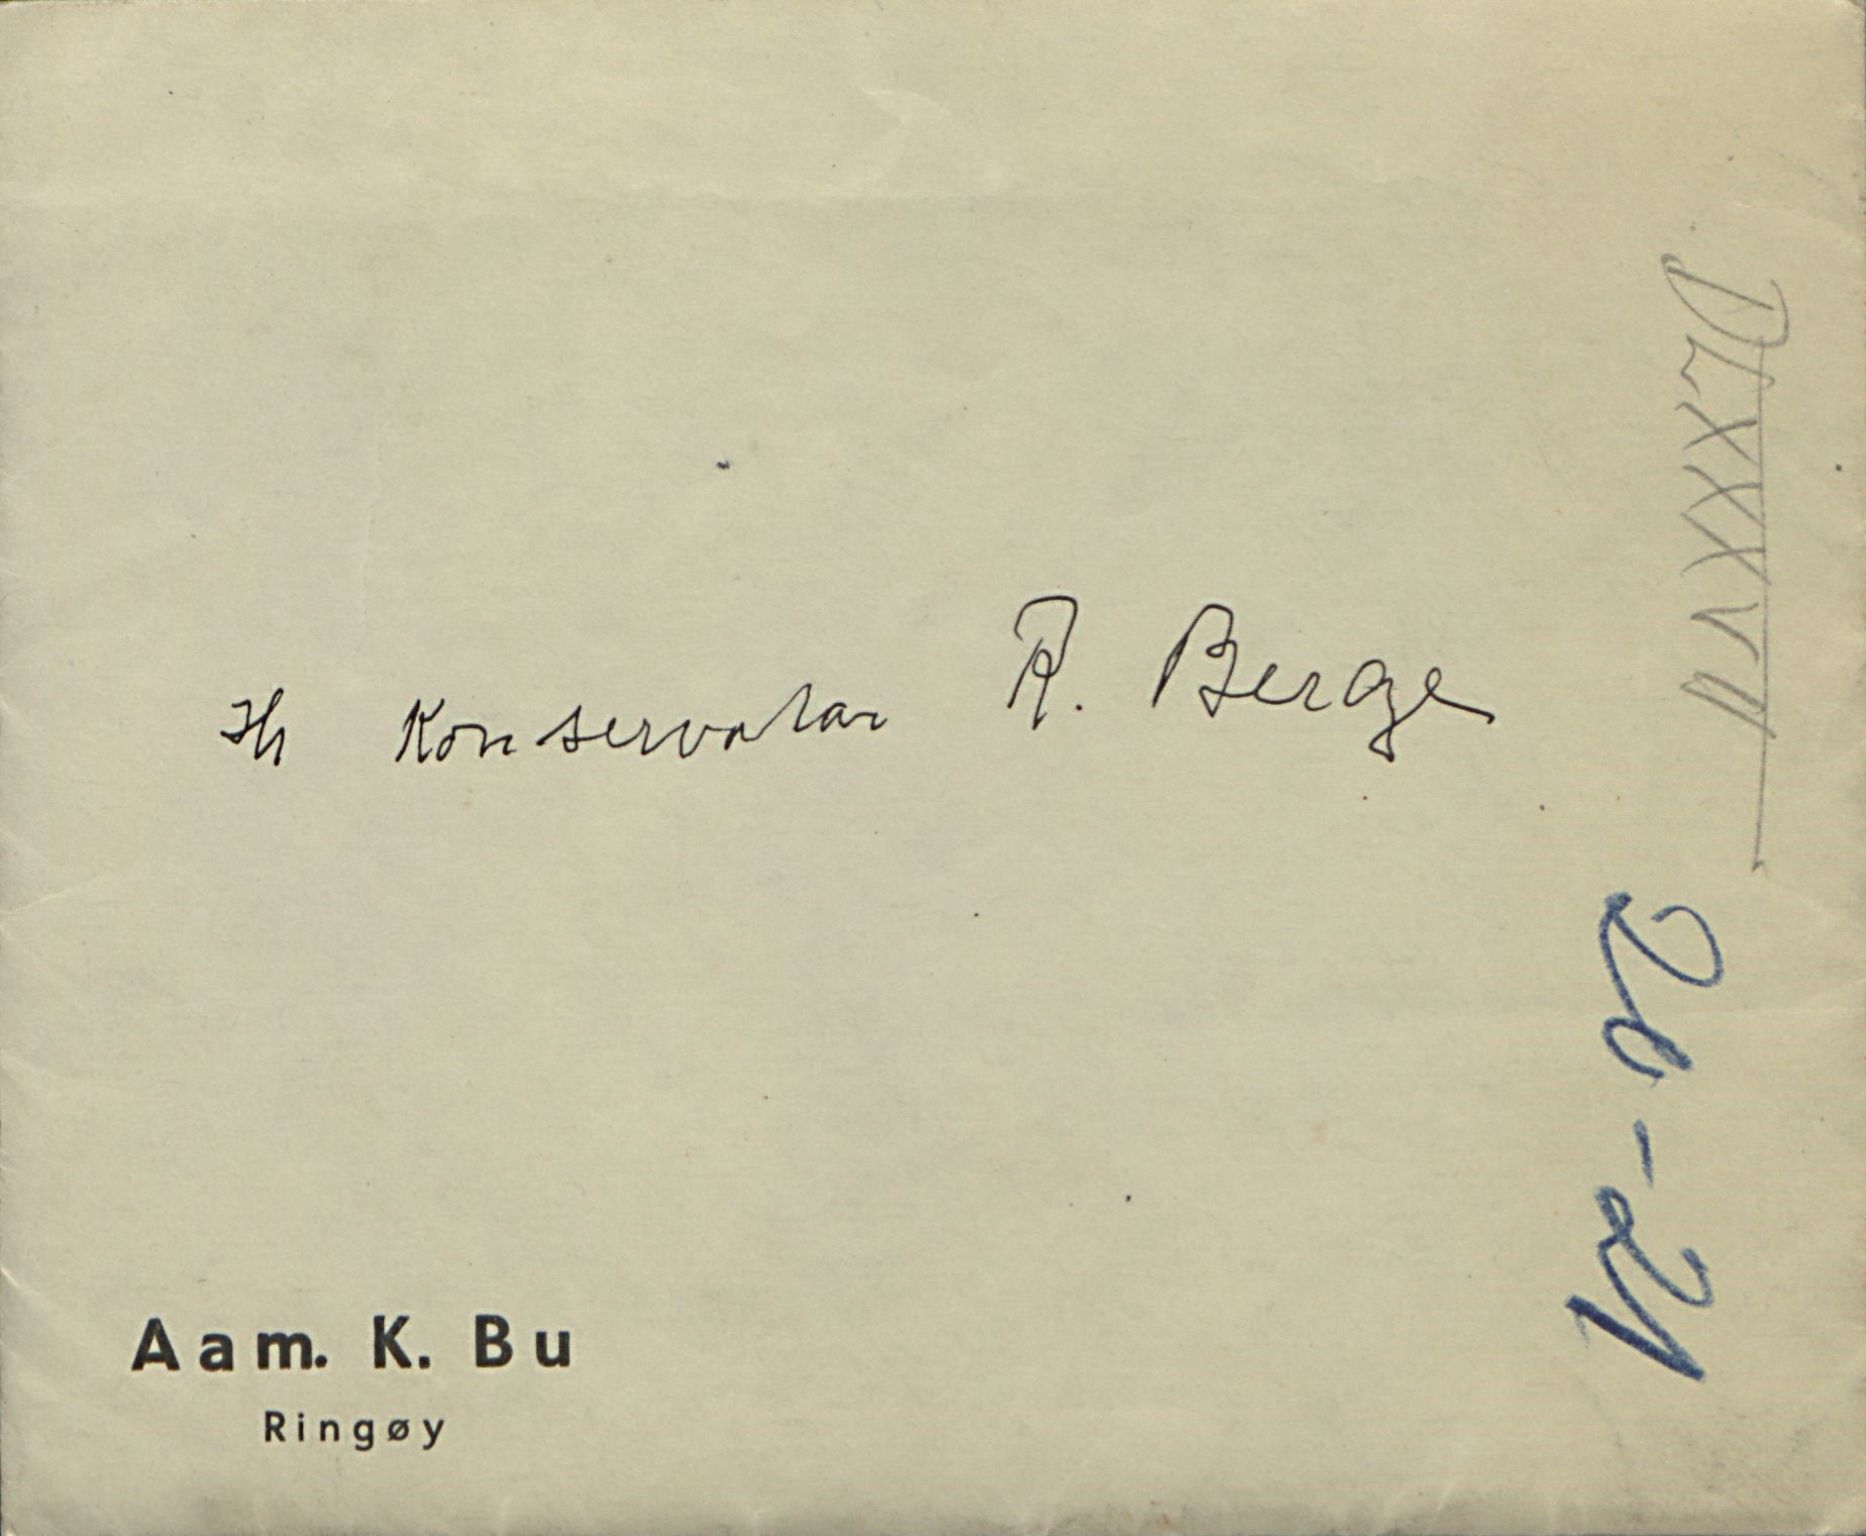 Hr Konservator R. Berge
DLXXXVII
20-21
Aam. K. Bu
Ringøy